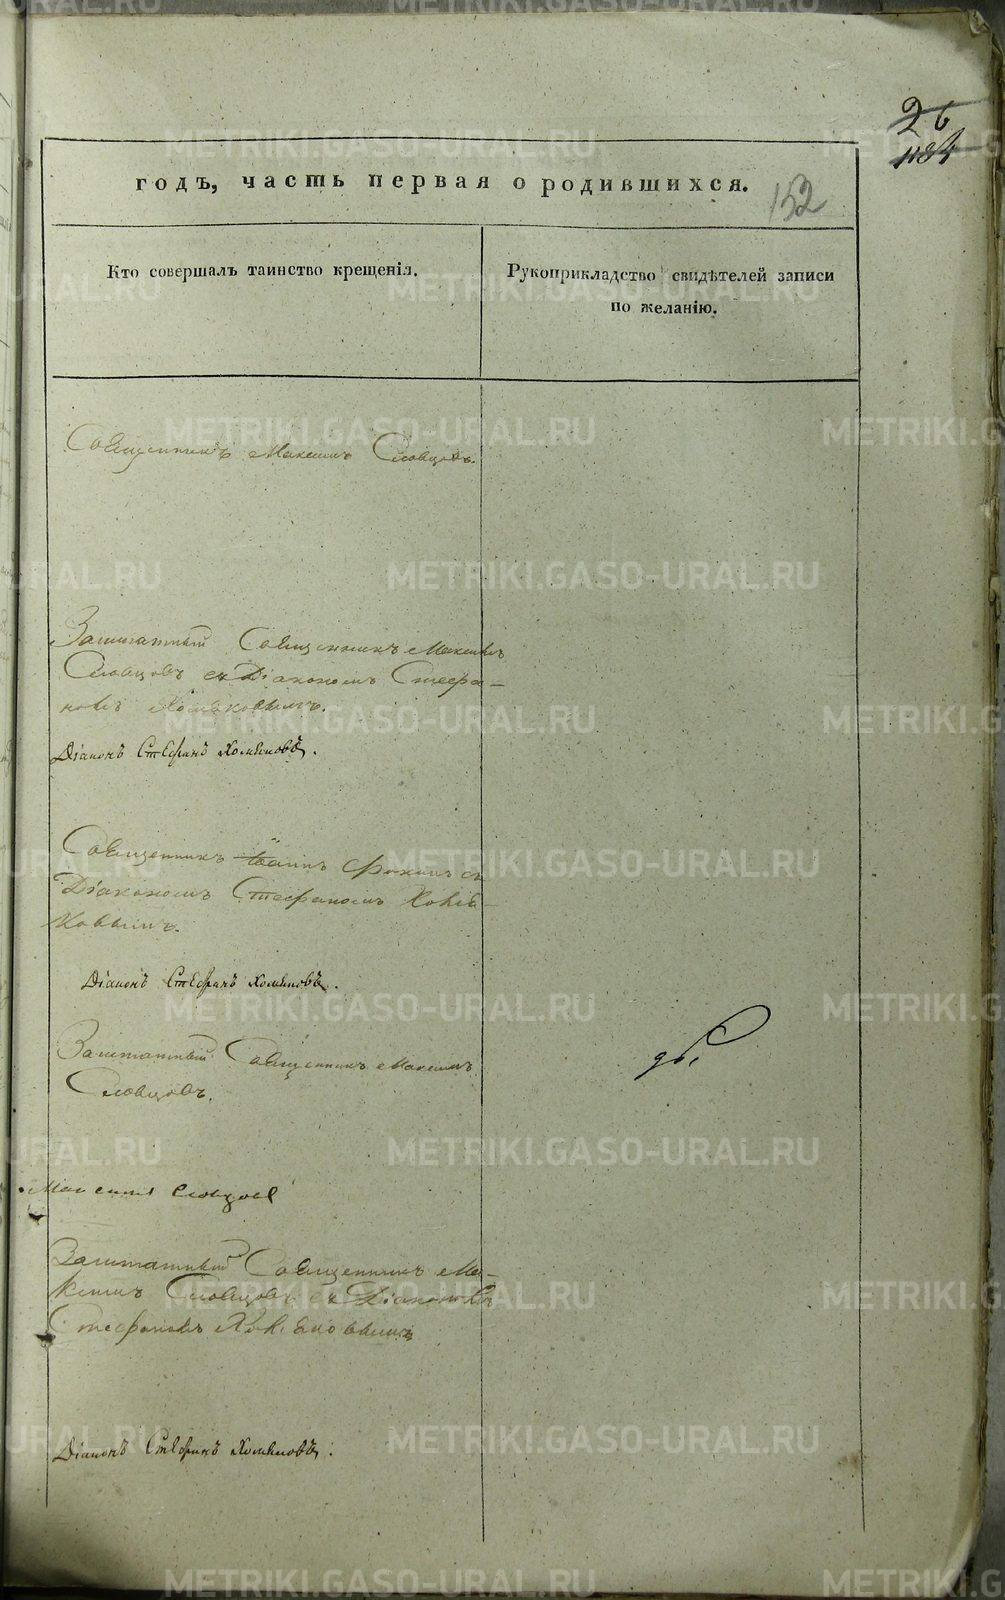 26
1184
годъ, часть первая о родившихся.
152
Кто совершалъ таинство крещенія.
Рукоприкладство свидѣтелей записи
по желанію.
Священникъ Максимъ Словцовъ.
Заштатный Священникъ Максимъ
Словцовъ съ Діакономъ Стефа-
номъ Хомяковымъ.
Діаконъ Стефанъ Хомяковъ.
Священникъ Іоаннъ Фокинъ съ
Діакономъ Стефаномъ Хомя-
ковымъ.
Діаконъ Стефанъ Хомяковъ.
Заштатный Священникъ Максимъ
Словцовъ.
Максимъ Словцовъ
Заштатный Священникъ Ма-
ксимъ Словцовъ съ Діакономъ
Стефаномъ Хомяковымъ
Діаконъ Стефанъ Хомяковъ.
METRIKI.GASO-URAL.RU